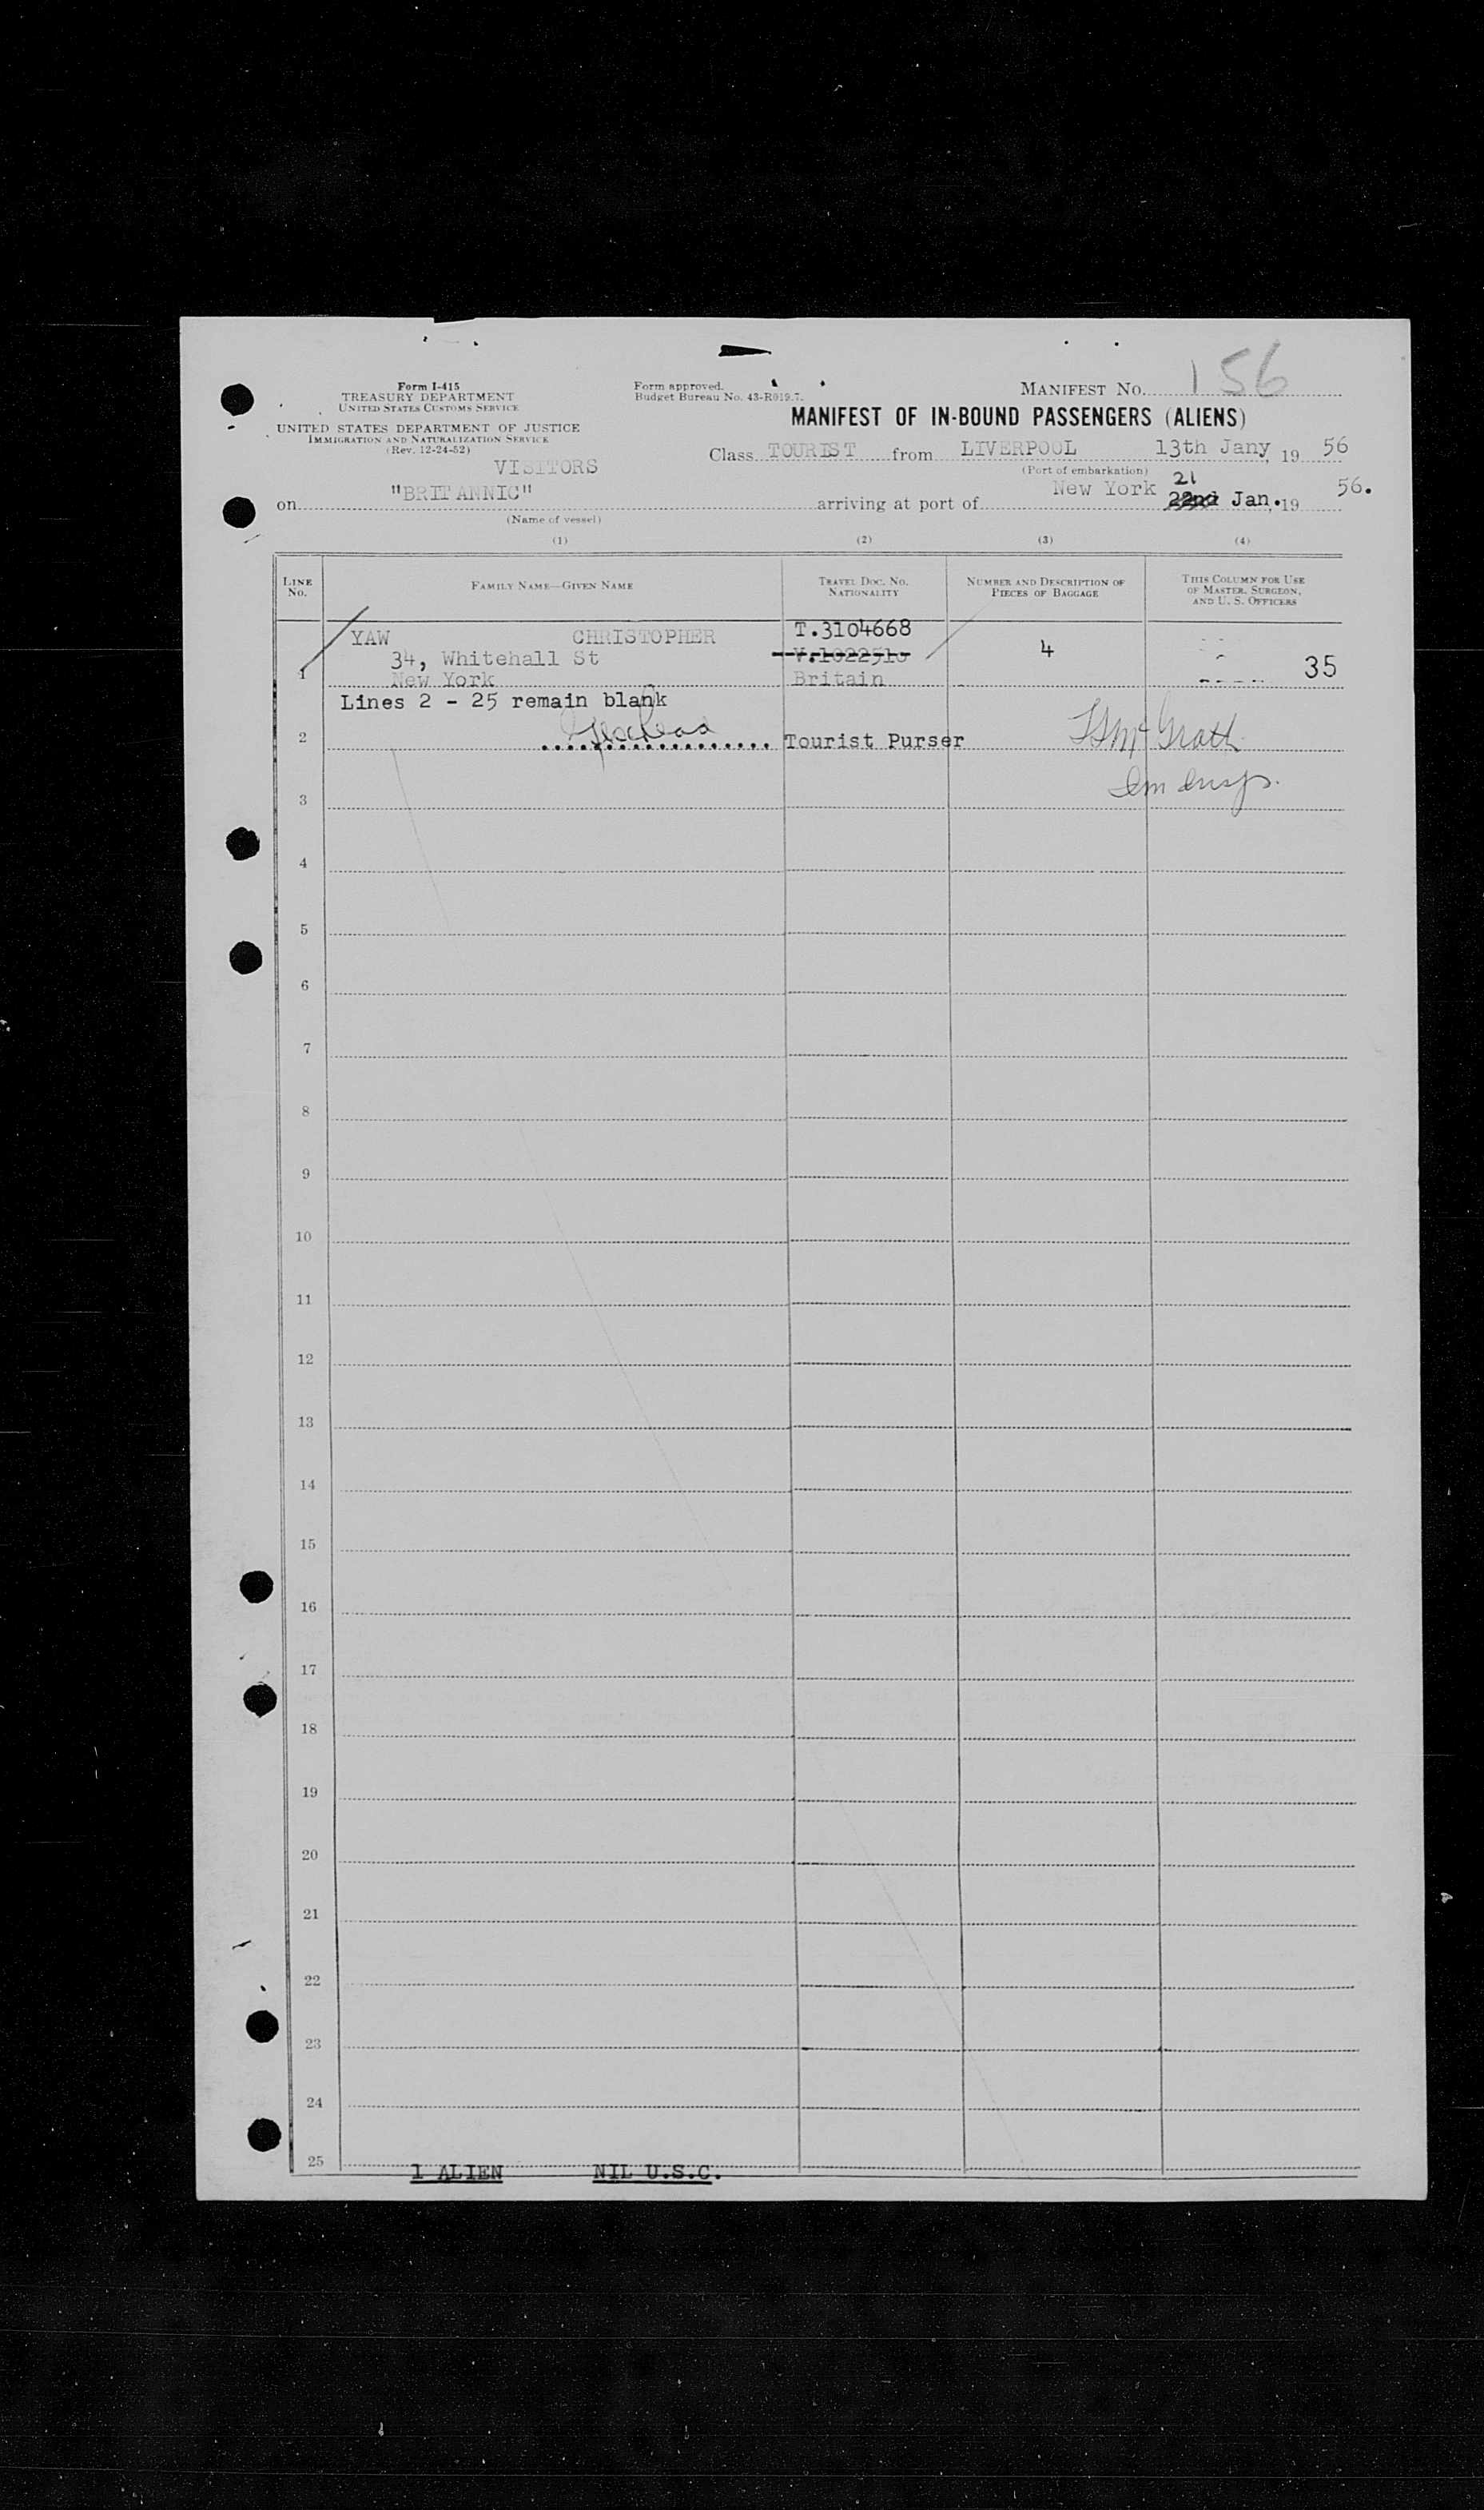 Form I-415
TREASURY DEPARTMENT
UNITED STATES CUSTOMS SERVICE
UNITED STATES DEPARTMENT OF JUSTICE
IMMIGRATION AND NATURALIZATION SERVICE
(Rev. 12-24-52)
Form approved.
Budget Bureau No. 43-R019.7.
MANIFEST NO. 156
MANIFEST OF IN-BOUND PASSENGERS (ALIENS)
VISITORS
Class TOURIST from LIVERPOOL 13th Jany, 19 56
(Port of embarkation)
on "BRITANNIC" arriving at port of New York 21 22nd Jan. 19 56.
(Name of vessel)
(1) (2) (3) (4)
LINE NO. FAMILY NAME—GIVEN NAME TRAVEL DOC. NO. NATIONALITY NUMBER AND DESCRIPTION OF PIECES OF BAGGAGE THIS COLUMN FOR USE OF MASTER, SURGEON, AND U. S. OFFICERS
YAW CHRISTOPHER T.3104668
34, Whitehall St V.1022510 4
1 New York Britain 35
Lines 2 - 25 remain blank
2 Tourist Purser McGrath
3 Im Insp.
4
5
6
7
8
9
10
11
12
13
14
15
16
17
18
19
20
21
22
23
24
25 1 ALIEN NIL U.S.C.